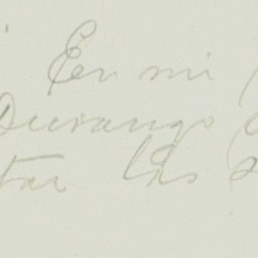 En mi
Durango
tar las